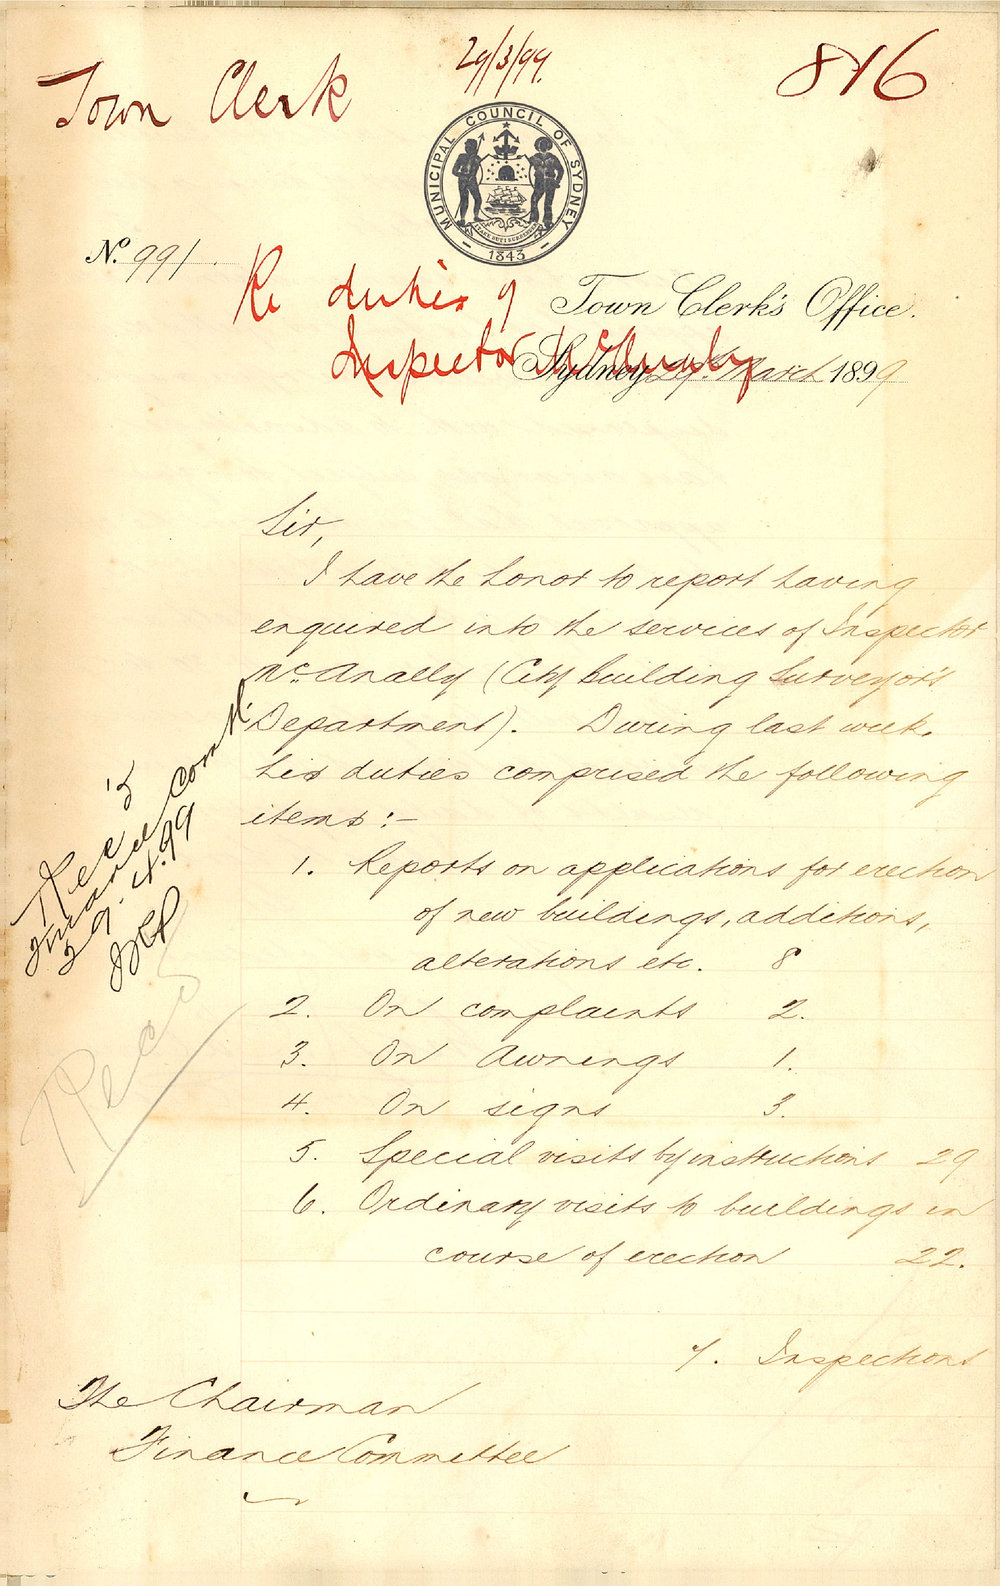 29/3/99.
Town Clerk
816
MUNICIPAL COUNCIL OF SYDNEY
1843
No. 991.
Re duties of
Inspector McAnally
Town Clerk's Office.
Sydney 29th March 1899
Sir,
I have the honor to report having
enquired into the services of Inspector
McAnally (City Building Surveyor's
Department). During last week,
his duties comprised the following
items :-
1. Reports on applications for erection
of new buildings, additions,
alterations etc. 8
2. On complaints 2.
3. On Awnings 1.
4. On signs 3.
5. Special visits by instructions 29
6. Ordinary visits to buildings in
course of erection 22.
7. Inspections
The Chairman
Finance Committee
Rec'd
Finance Comtt
29.4.99
Recd